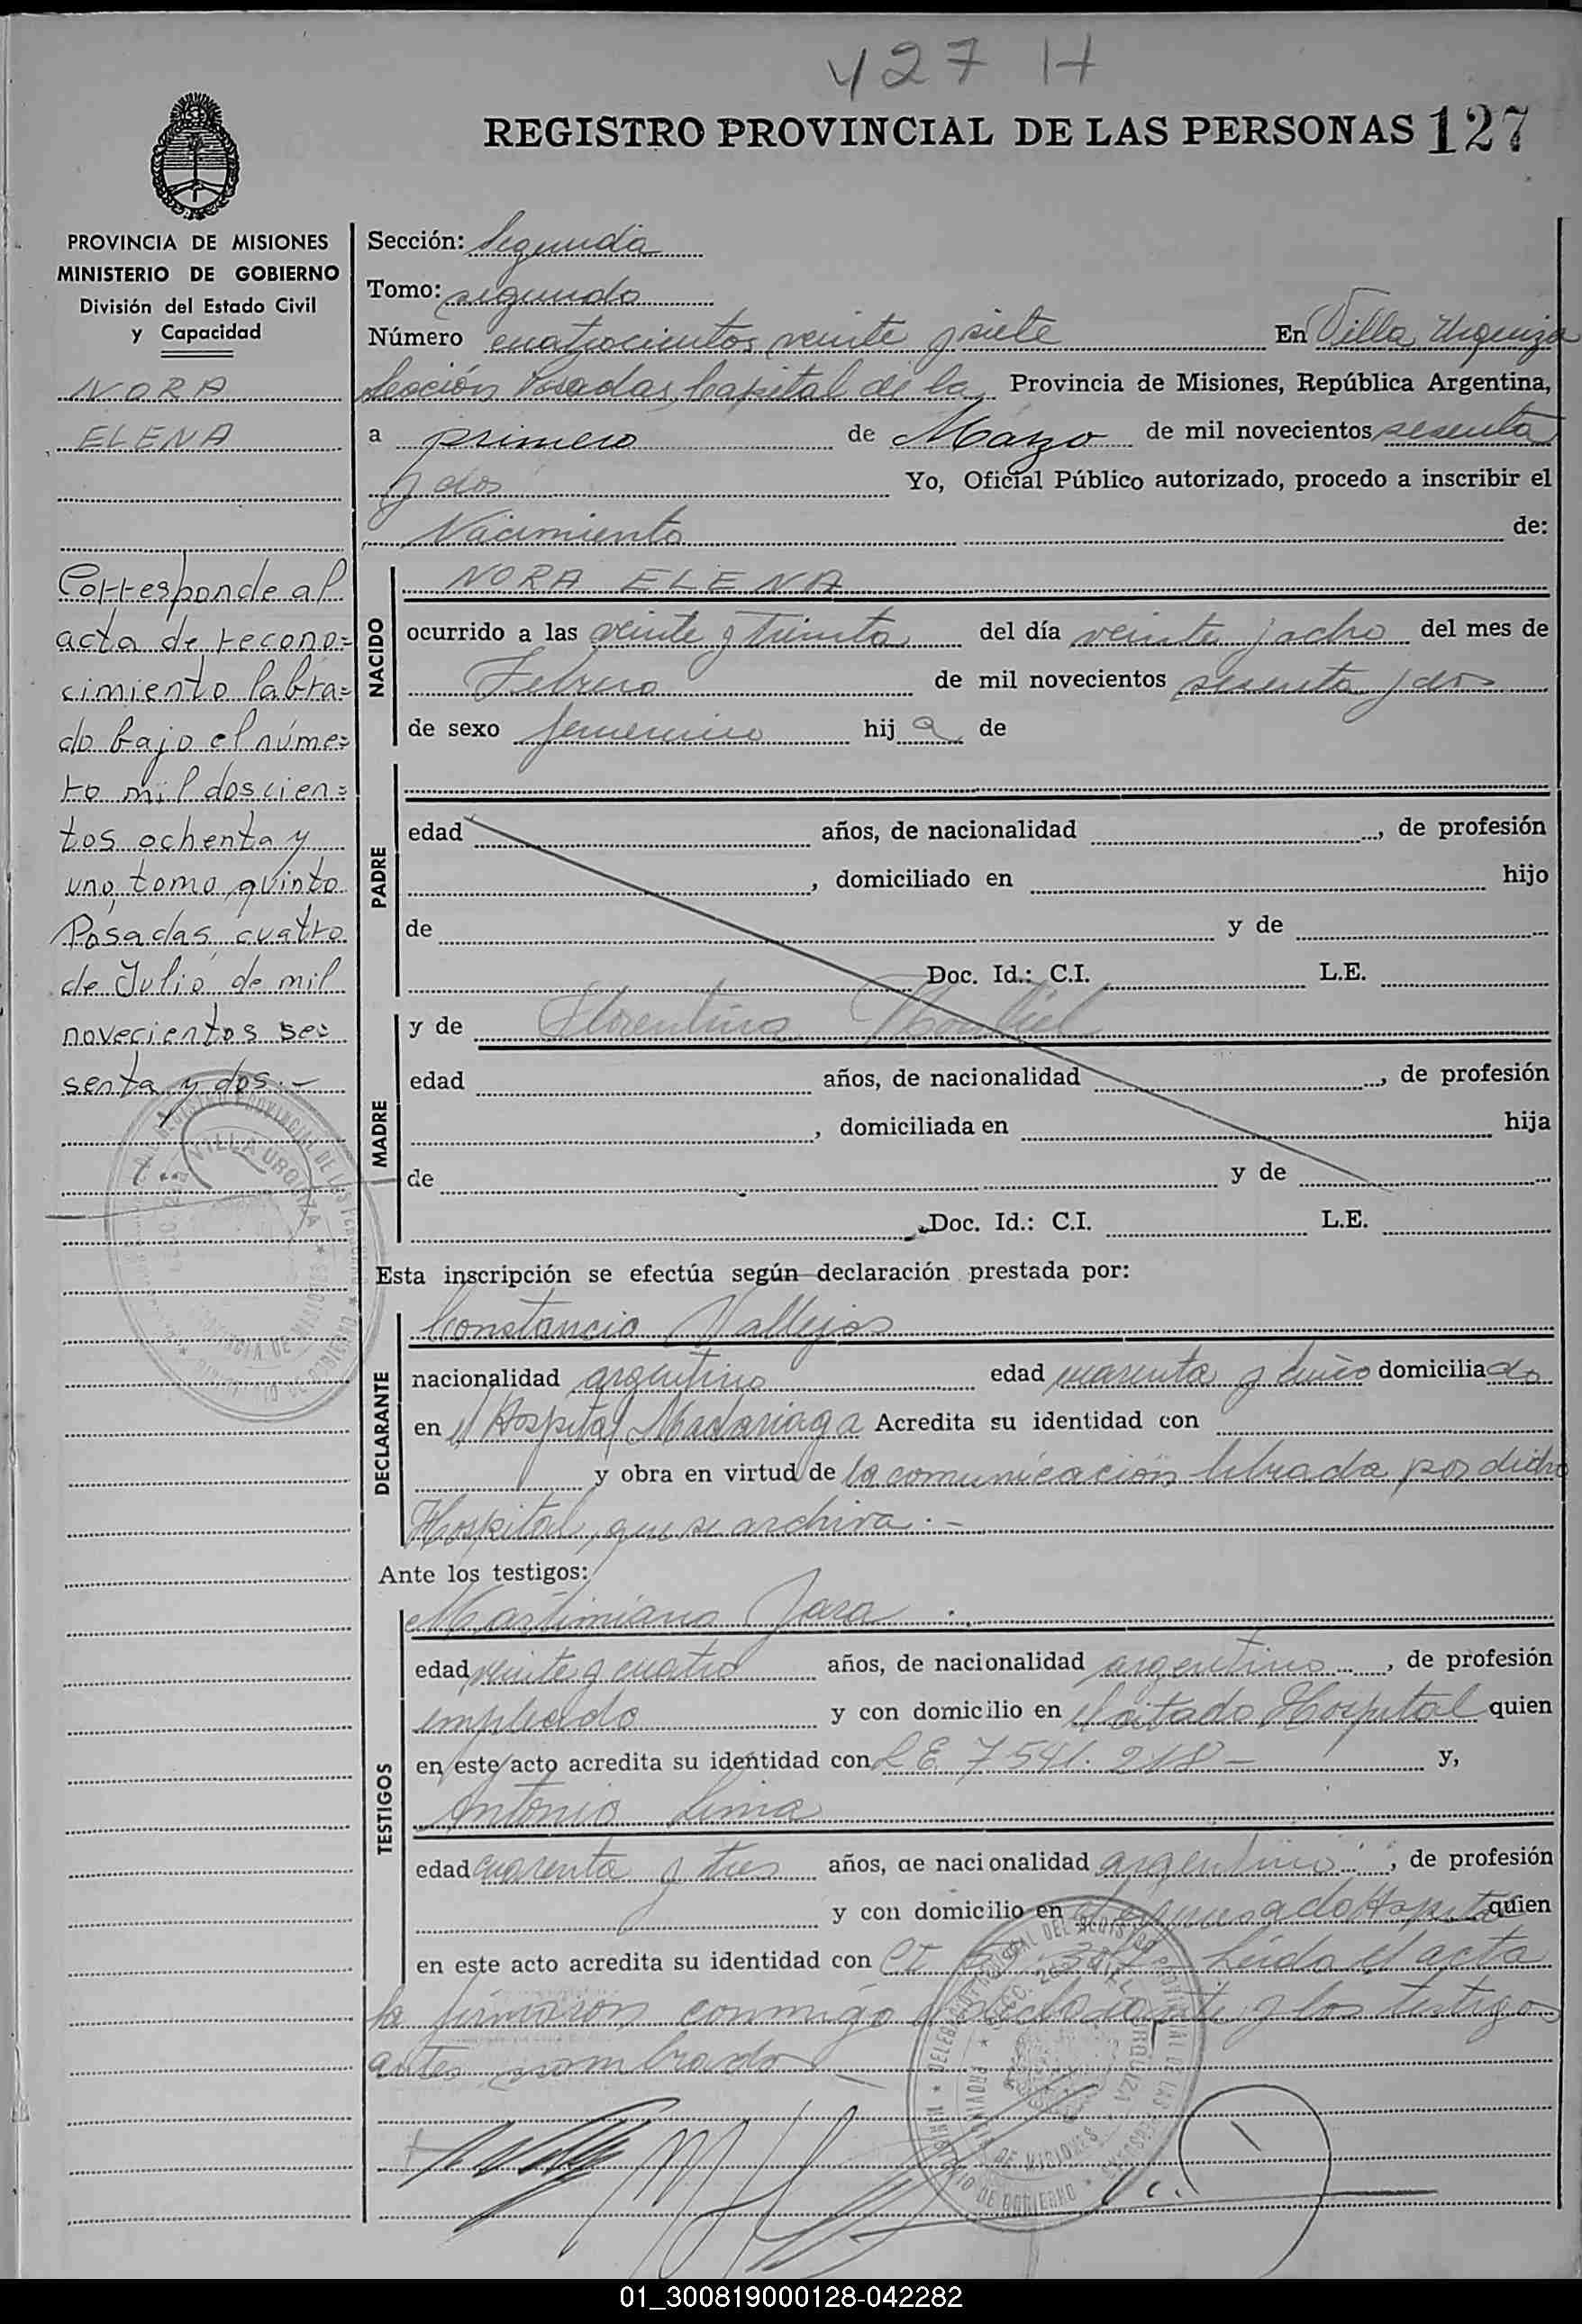 427 H
REGISTRO PROVINCIAL DE LAS PERSONAS 127
PROVINCIA DE MISIONES
MINISTERIO DE GOBIERNO
División del Estado Civil
y Capacidad
NORA
ELENA
Corresponde al
acta de recono=
cimiento labra=
do bajo el núme=
ro mil doscien=
tos ochenta y
uno, tomo quinto
Posadas, cuatro
de Julio de mil
novecientos se=
senta y dos.-
Sección: Segunda
Tomo: segundo
Número cuatrocientos veinte y siete En Villa Urquiza
Sección Posadas, Capital de la Provincia de Misiones, República Argentina,
a primero de Marzo de mil novecientos sesenta
y dos Yo, Oficial Público autorizado, procedo a inscribir el
Nacimiento de:
NACIDO
NORA ELENA
ocurrido a las veinte y treinta del día veinte y ocho del mes de
Febrero de mil novecientos sesenta y dos
de sexo femenino hij a de
PADRE
edad años, de nacionalidad , de profesión
, domiciliado en hijo
de y de
Doc. Id.: C.I. L.E.
MADRE
y de Florentina
edad años, de nacionalidad , de profesión
, domiciliada en hija
de y de
Doc. Id.: C.I. L.E.
Esta inscripción se efectúa según declaración prestada por:
DECLARANTE
Constancio Vallejos
nacionalidad argentino edad cuarenta y cinco domiciliado
en el Hospital Madariaga Acredita su identidad con
y obra en virtud de la comunicación librada por dicho
Hospital, que se archiva.-
Ante los testigos:
TESTIGOS
Martimiano Jara
edad veinte y cuatro años, de nacionalidad argentino, de profesión
empleado y con domicilio en el citado Hospital quien
en este acto acredita su identidad con L E 7541.218- y,
Antonio Lima
edad cuarenta y tres años, de nacionalidad argentino, de profesión
y con domicilio en el expresado Hospital quien
en este acto acredita su identidad con CI Leída el acta
la firmaron conmigo el declarante y los testigos
antes nombrados
01_300819000128-042282